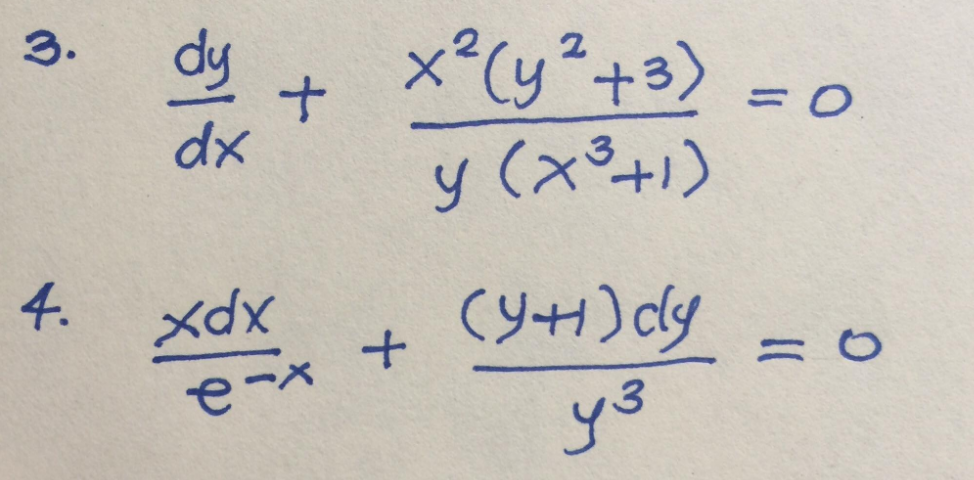 3. dy/dx + x²(y²+3)/y(x³+1) = 0
4. xdx/e^-x + (y+1)dy/y³ = 0